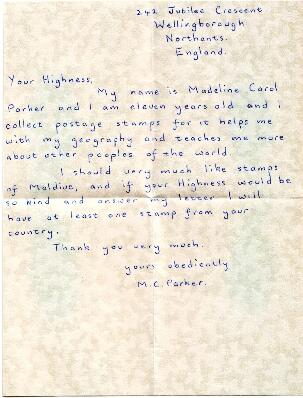 242 Jubilee Crescent
Wellingborough
Northants.
England.
Your Highness,
My name is Madeline Carol
Parker and I am eleven years old and i
collect postage stamps for it helps me
with my geography and teaches me more
about other peoples of the world.
I should very much like stamps
of Maldive, and if your Highness would be
so kind and answer my letter I will
have at least one stamp from your
country.
Thank you very much.
yours obediently
M.C. Parker.